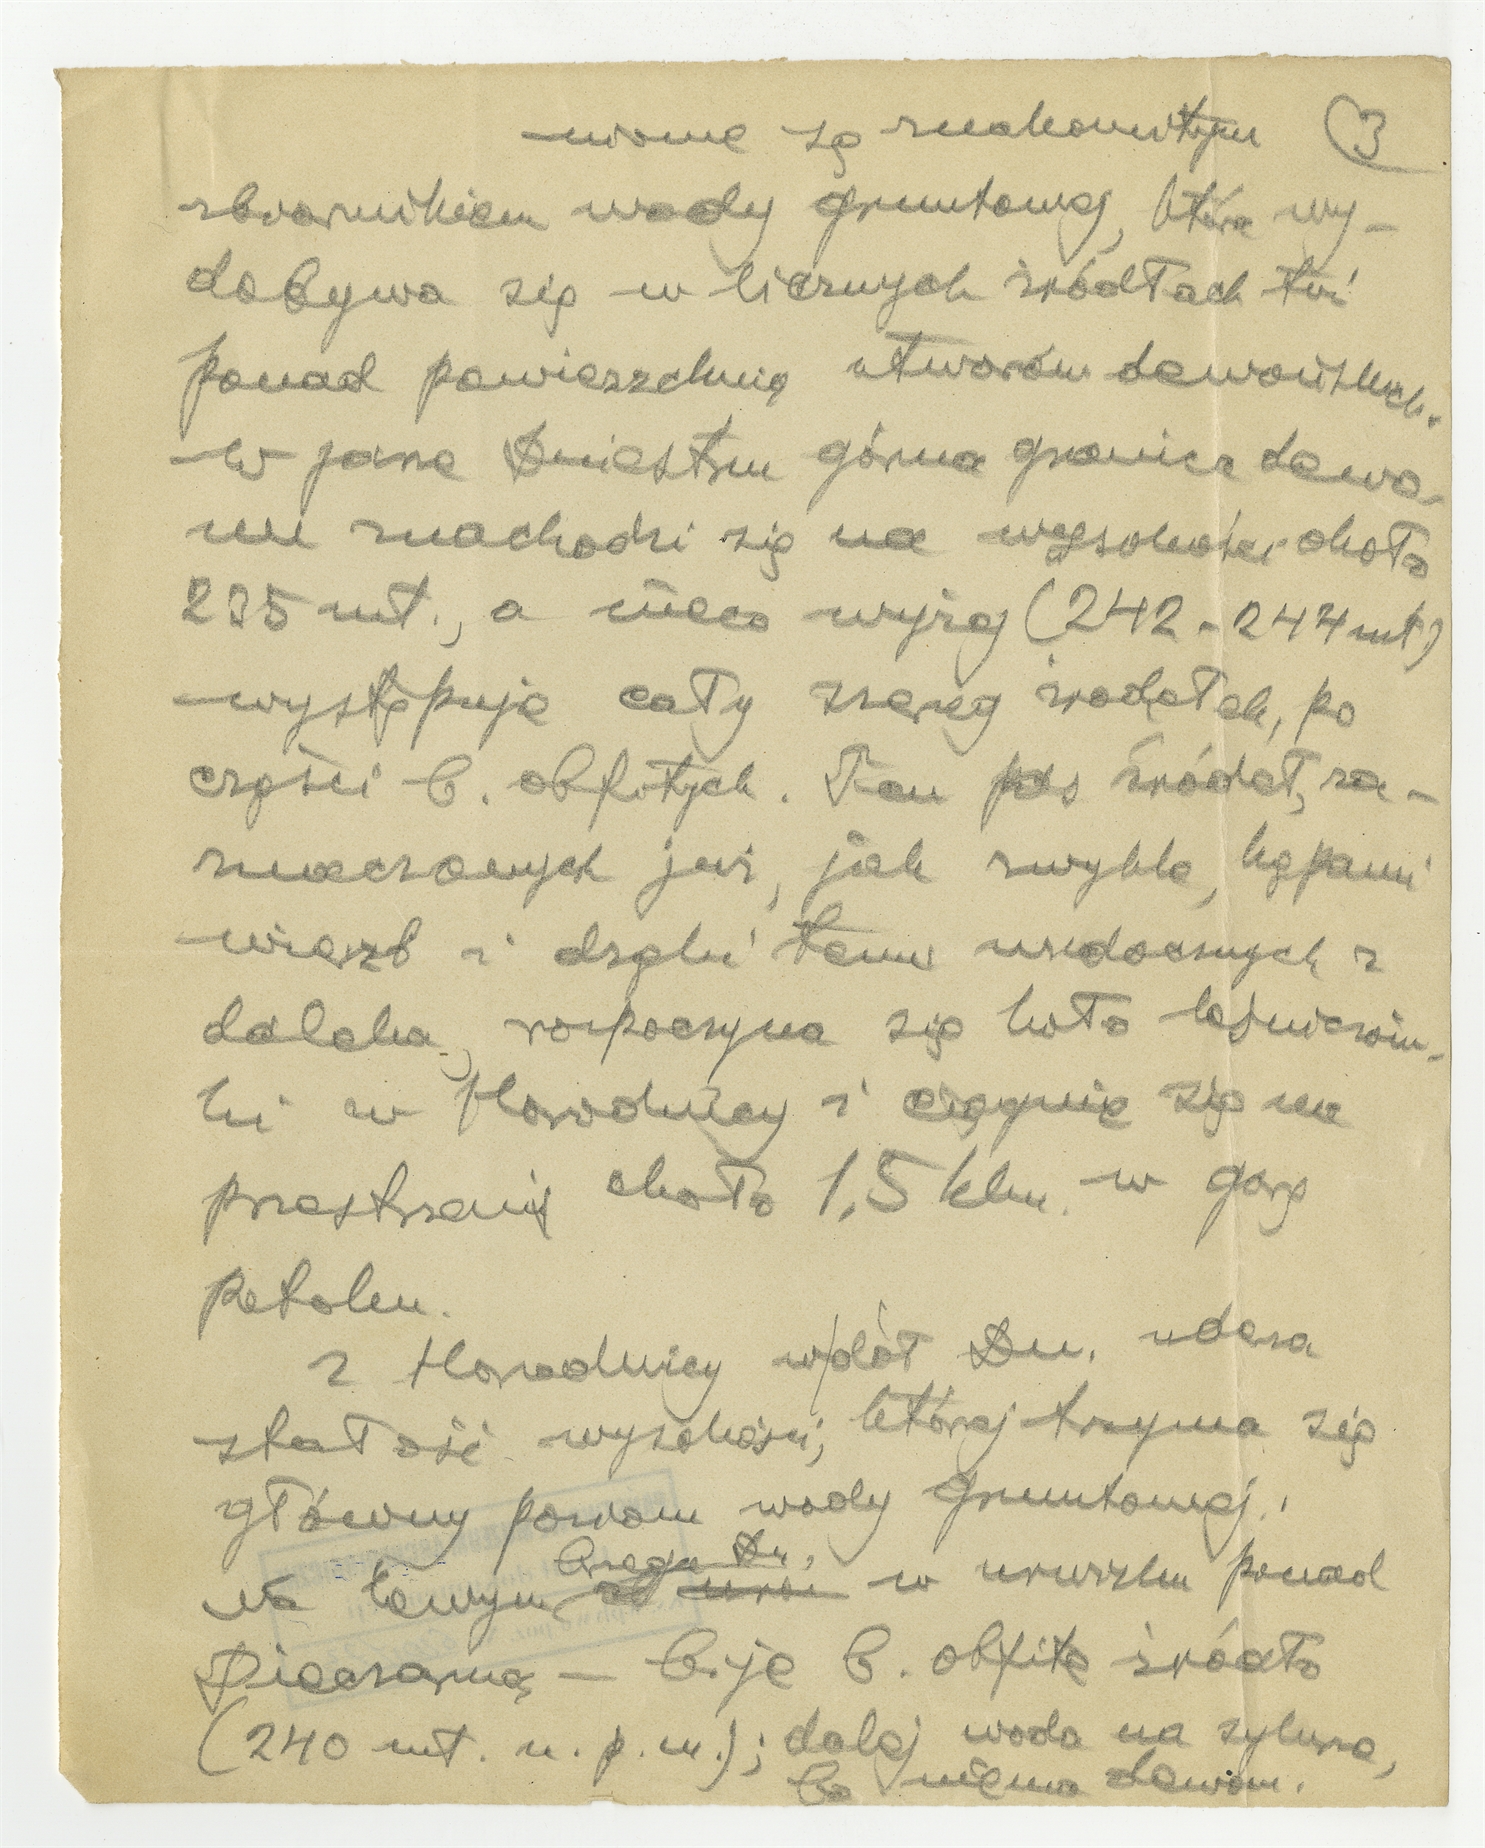 wione są znakomitym 3
zbiornikiem wody gruntowej, która wy-
dobywa się w licznych źródłach tuż
ponad powierzchnią utworów dewońskich.
W jarze Dniestru górna granica dewo-
nu znachodzi się na wysokości około
235 mt., a nieco wyżej (242 - 244 mt)
występuje cały szereg źródełek, po
części b. obfitych. Ten pas źródeł, za-
znaczonych już, jak zwykle, kępami
wierzb i dzięki temu widocznych z
daleka, rozpoczyna się koło leśniczów-
ki w Horodnicy i ciągnie się na
przestrzeni około 1,5 klm. w górę
potoku.
Z Horodnicy wdół Dn. uderza
stałość wysokości, której trzyma się
główny poziom wody gruntowej.
Na lewym brzegu Dn. w urwisku ponad
Pieczarną — bije b. obfite źródło
(240 mt. n. p. m.); dalej woda na sylurze,
bo niema dewonu.